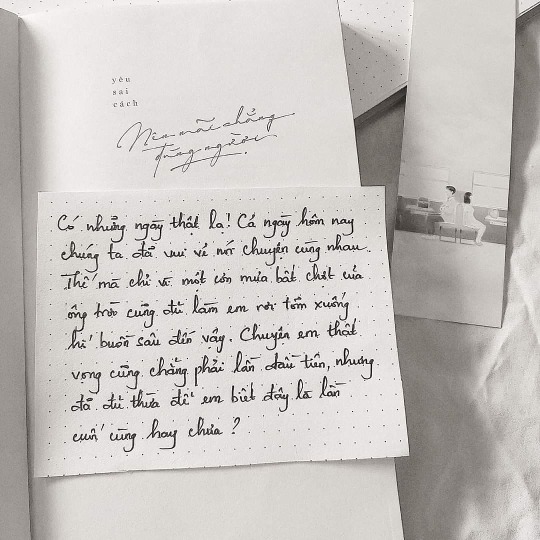 yêu
sai
cách
Nên mãi chẳng
đúng người.
Có những ngày thật lạ! Cả ngày hôm nay
chúng ta đã vui vẻ nói chuyện cùng nhau.
Thế mà chỉ vì một cơn mưa bất chợt của
ông trời cũng đủ làm em rơi tõm xuống
hố buồn sâu đến vậy. Chuyện em thất
vọng cũng chẳng phải lần đầu tiên, nhưng
đã đủ thừa để em biết đây là lần
cuối cùng hay chưa?